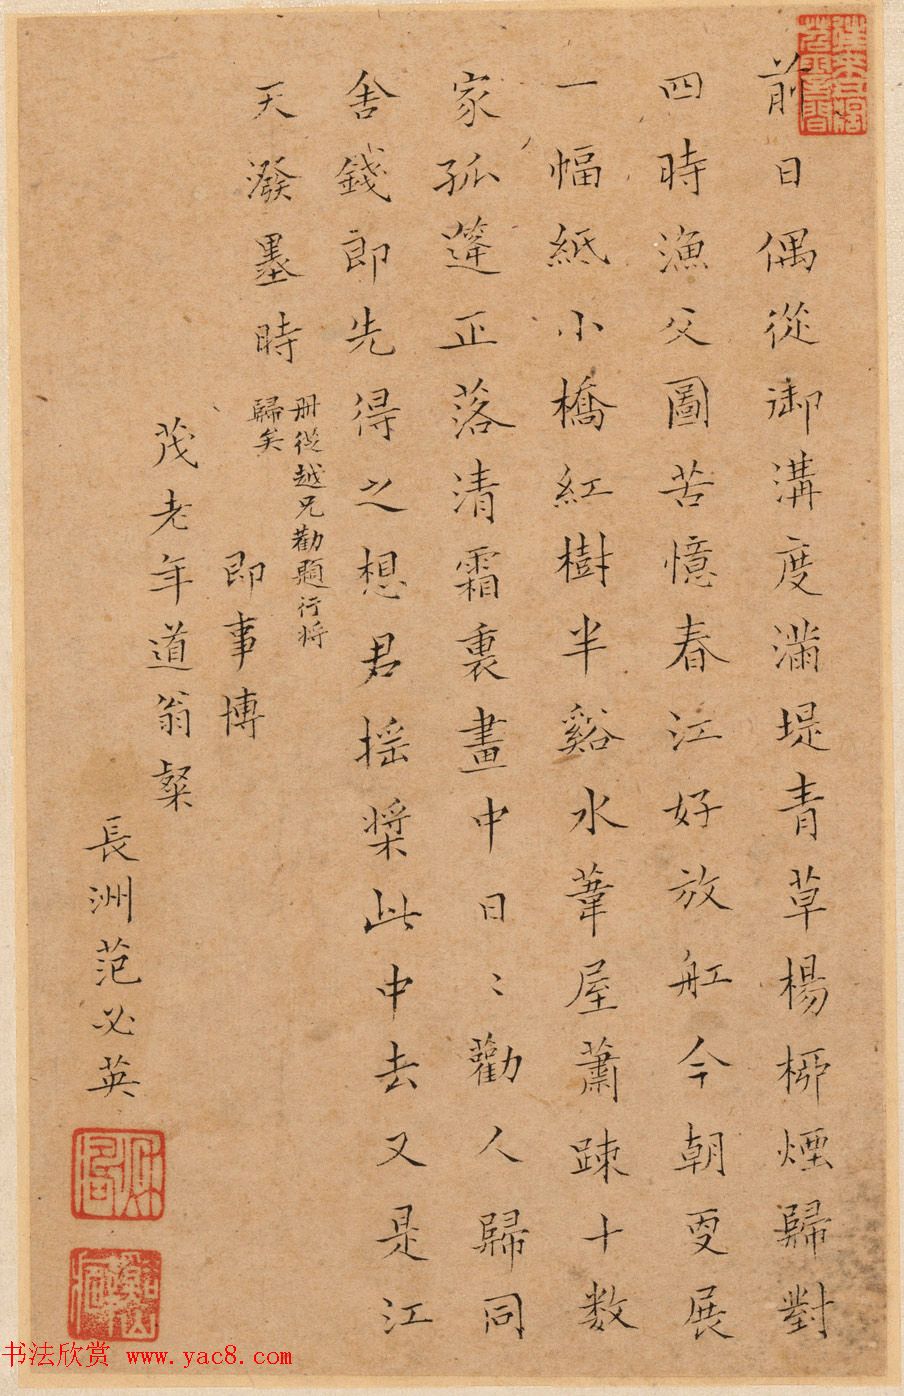 前日偶從御溝度滿堤青草楊桺煙歸對
四時漁父圖苦憶春江好放舡今朝更展
一幅紙小橋紅樹半谿水葦屋蕭踈十數
家孤篷正落清霜裏畫中日〻勸人歸同
舍錢郎先得之想君揺槳此中去又是江
天潑墨時
册從越兄勸題行將
歸矣
即事博
茂老年道翁粲
長洲范必英
书法欣赏 www.yac8.com